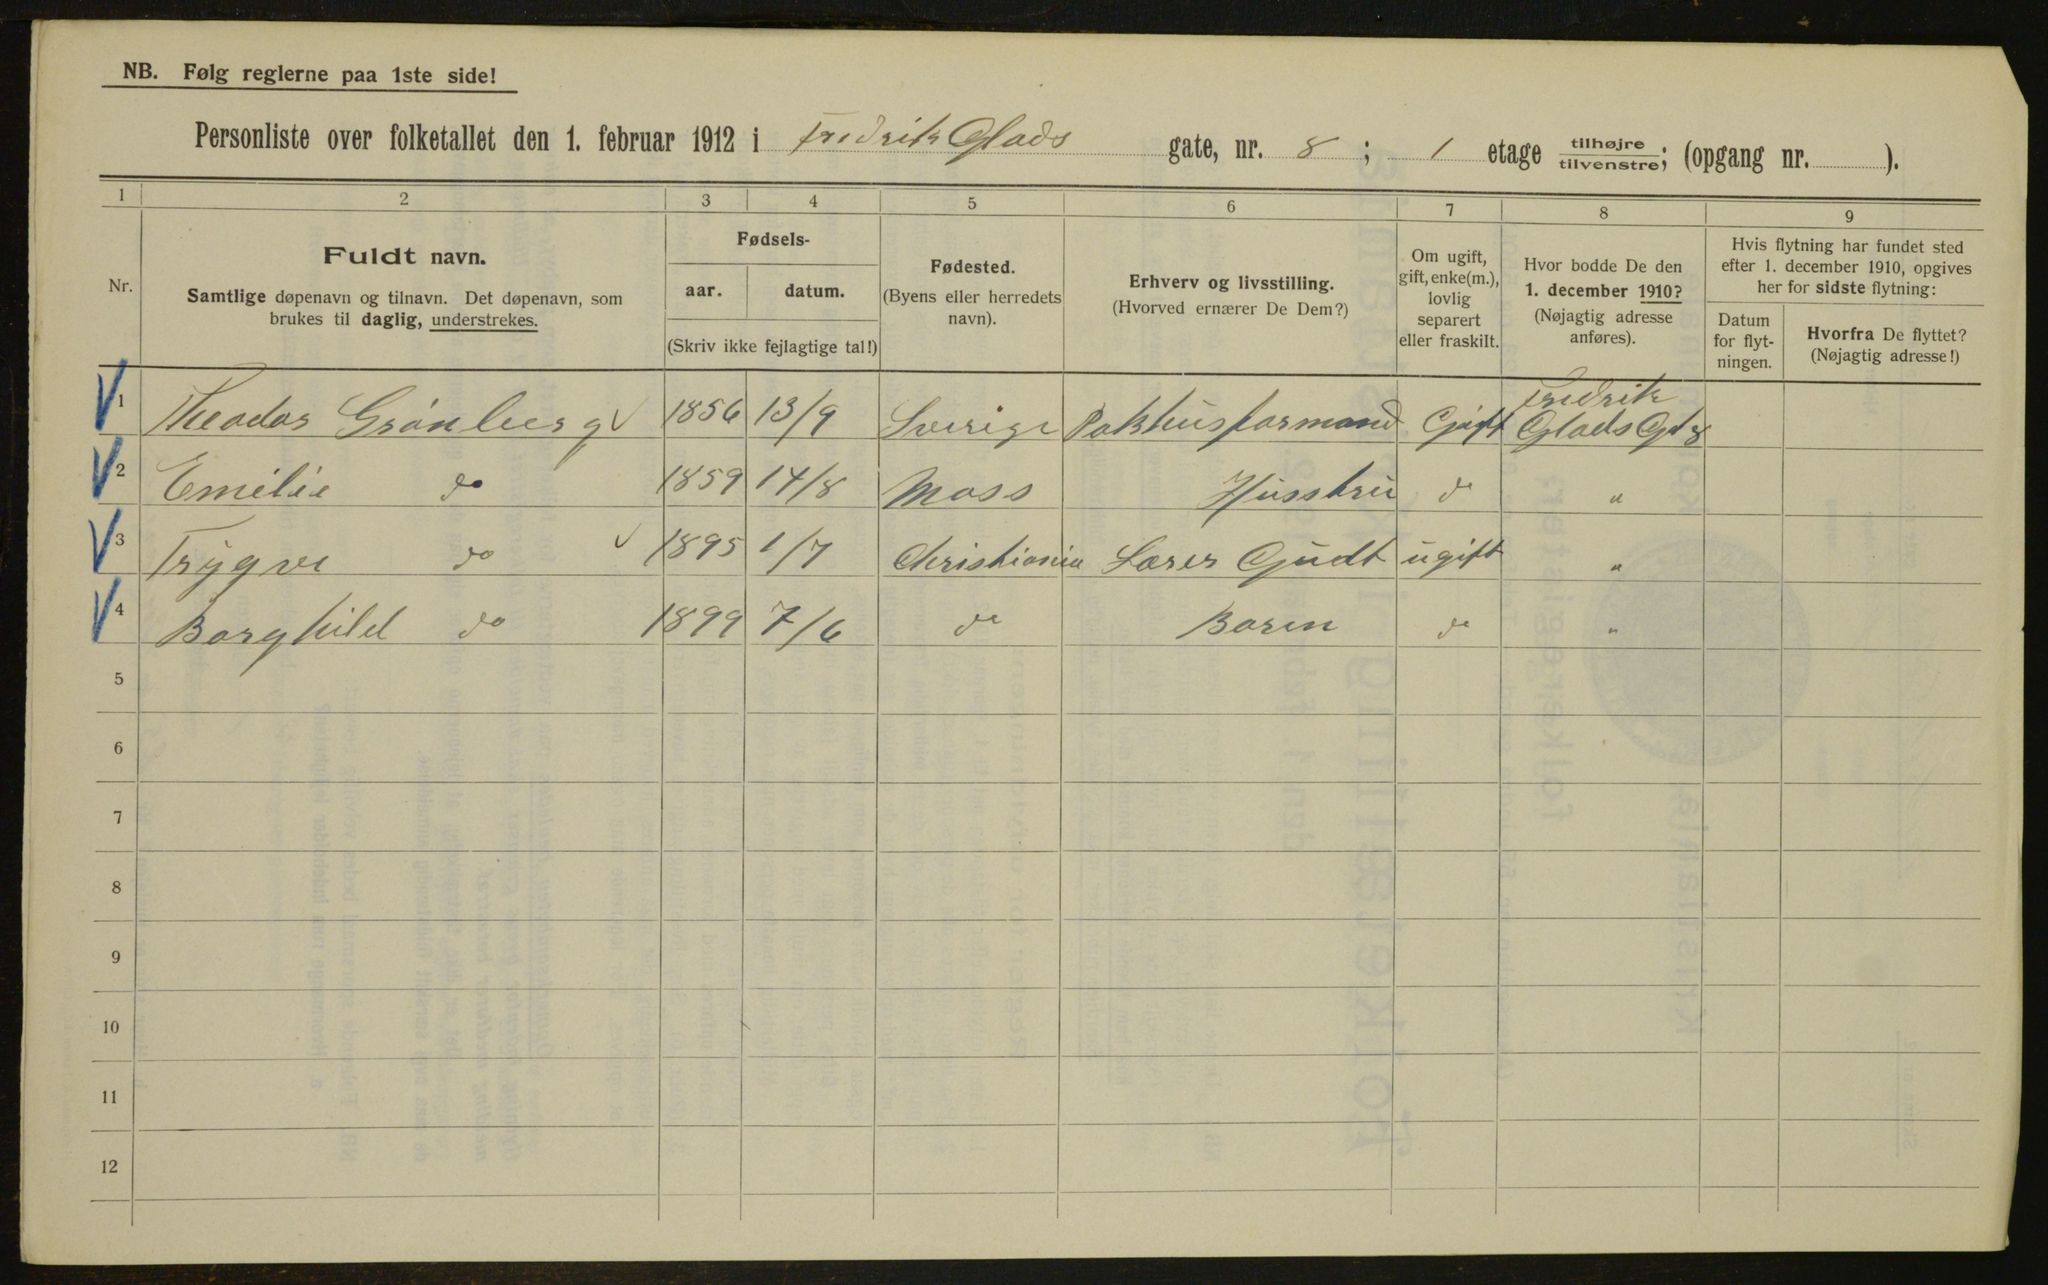 NB. Følg reglerne paa 1ste side!
Personliste over folketallet den 1. februar 1912 i Fredrik Glads gate, nr. 8 ; 1 etage tilhøjre/tilvenstre; (opgang nr. ).
1 2 3 4 5 6 7 8 9
Nr.
Fuldt navn.
Samtlige døpenavn og tilnavn. Det døpenavn, som
brukes til daglig, understrekes.
Fødsels-
aar. datum.
(Skriv ikke fejlagtige tal!)
Fødested.
(Byens eller herredets
navn).
Erhverv og livsstilling.
(Hvorved ernærer De Dem?)
Om ugift,
gift, enke(m.),
lovlig
separert
eller fraskilt.
Hvor bodde De den
1. december 1910?
(Nøjagtig adresse
anføres).
Hvis flytning har fundet sted
efter 1. december 1910, opgives
her for sidste flytning:
Datum
for flyt-
ningen.
Hvorfra De flyttet?
(Nøjagtig adresse!)
1 Theodor Grönberg 1856 13/9 Sverige Pakhusformand Gift Fredrik Glads Gt 8
2 Emilie do 1859 14/8 Moss Husstru do "
3 Trygve do 1895 1/7 Christiania Lærer Gudt ugift "
4 Borghild do 1899 7/6 do Baren do "
5
6
7
8
9
10
11
12